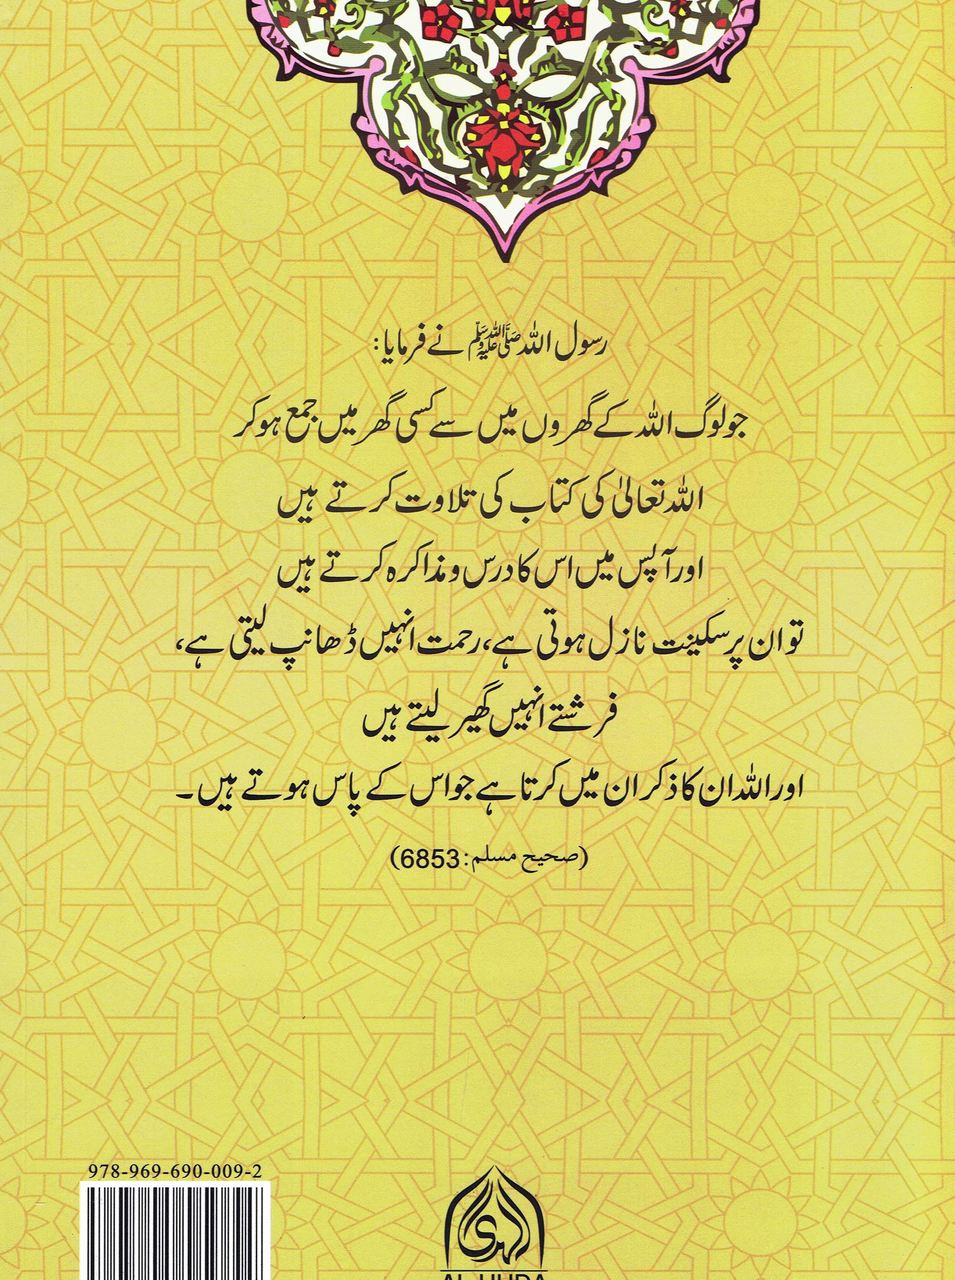 رسول اللہ ﷺ نے فرمایا:
جو لوگ اللہ کے گھروں میں سے کسی گھر میں جمع ہو کر
اللہ تعالیٰ کی کتاب کی تلاوت کرتے ہیں
اور آپس میں اس کا درس و مذاکرہ کرتے ہیں
تو ان پر سکینت نازل ہوتی ہے، رحمت انہیں ڈھانپ لیتی ہے،
فرشتے انہیں گھیر لیتے ہیں
اور اللہ ان کا ذکر ان میں کرتا ہے جو اس کے پاس ہوتے ہیں۔
(صحیح مسلم: 6853)
978-969-690-009-2
الهدى
AL-HUDA